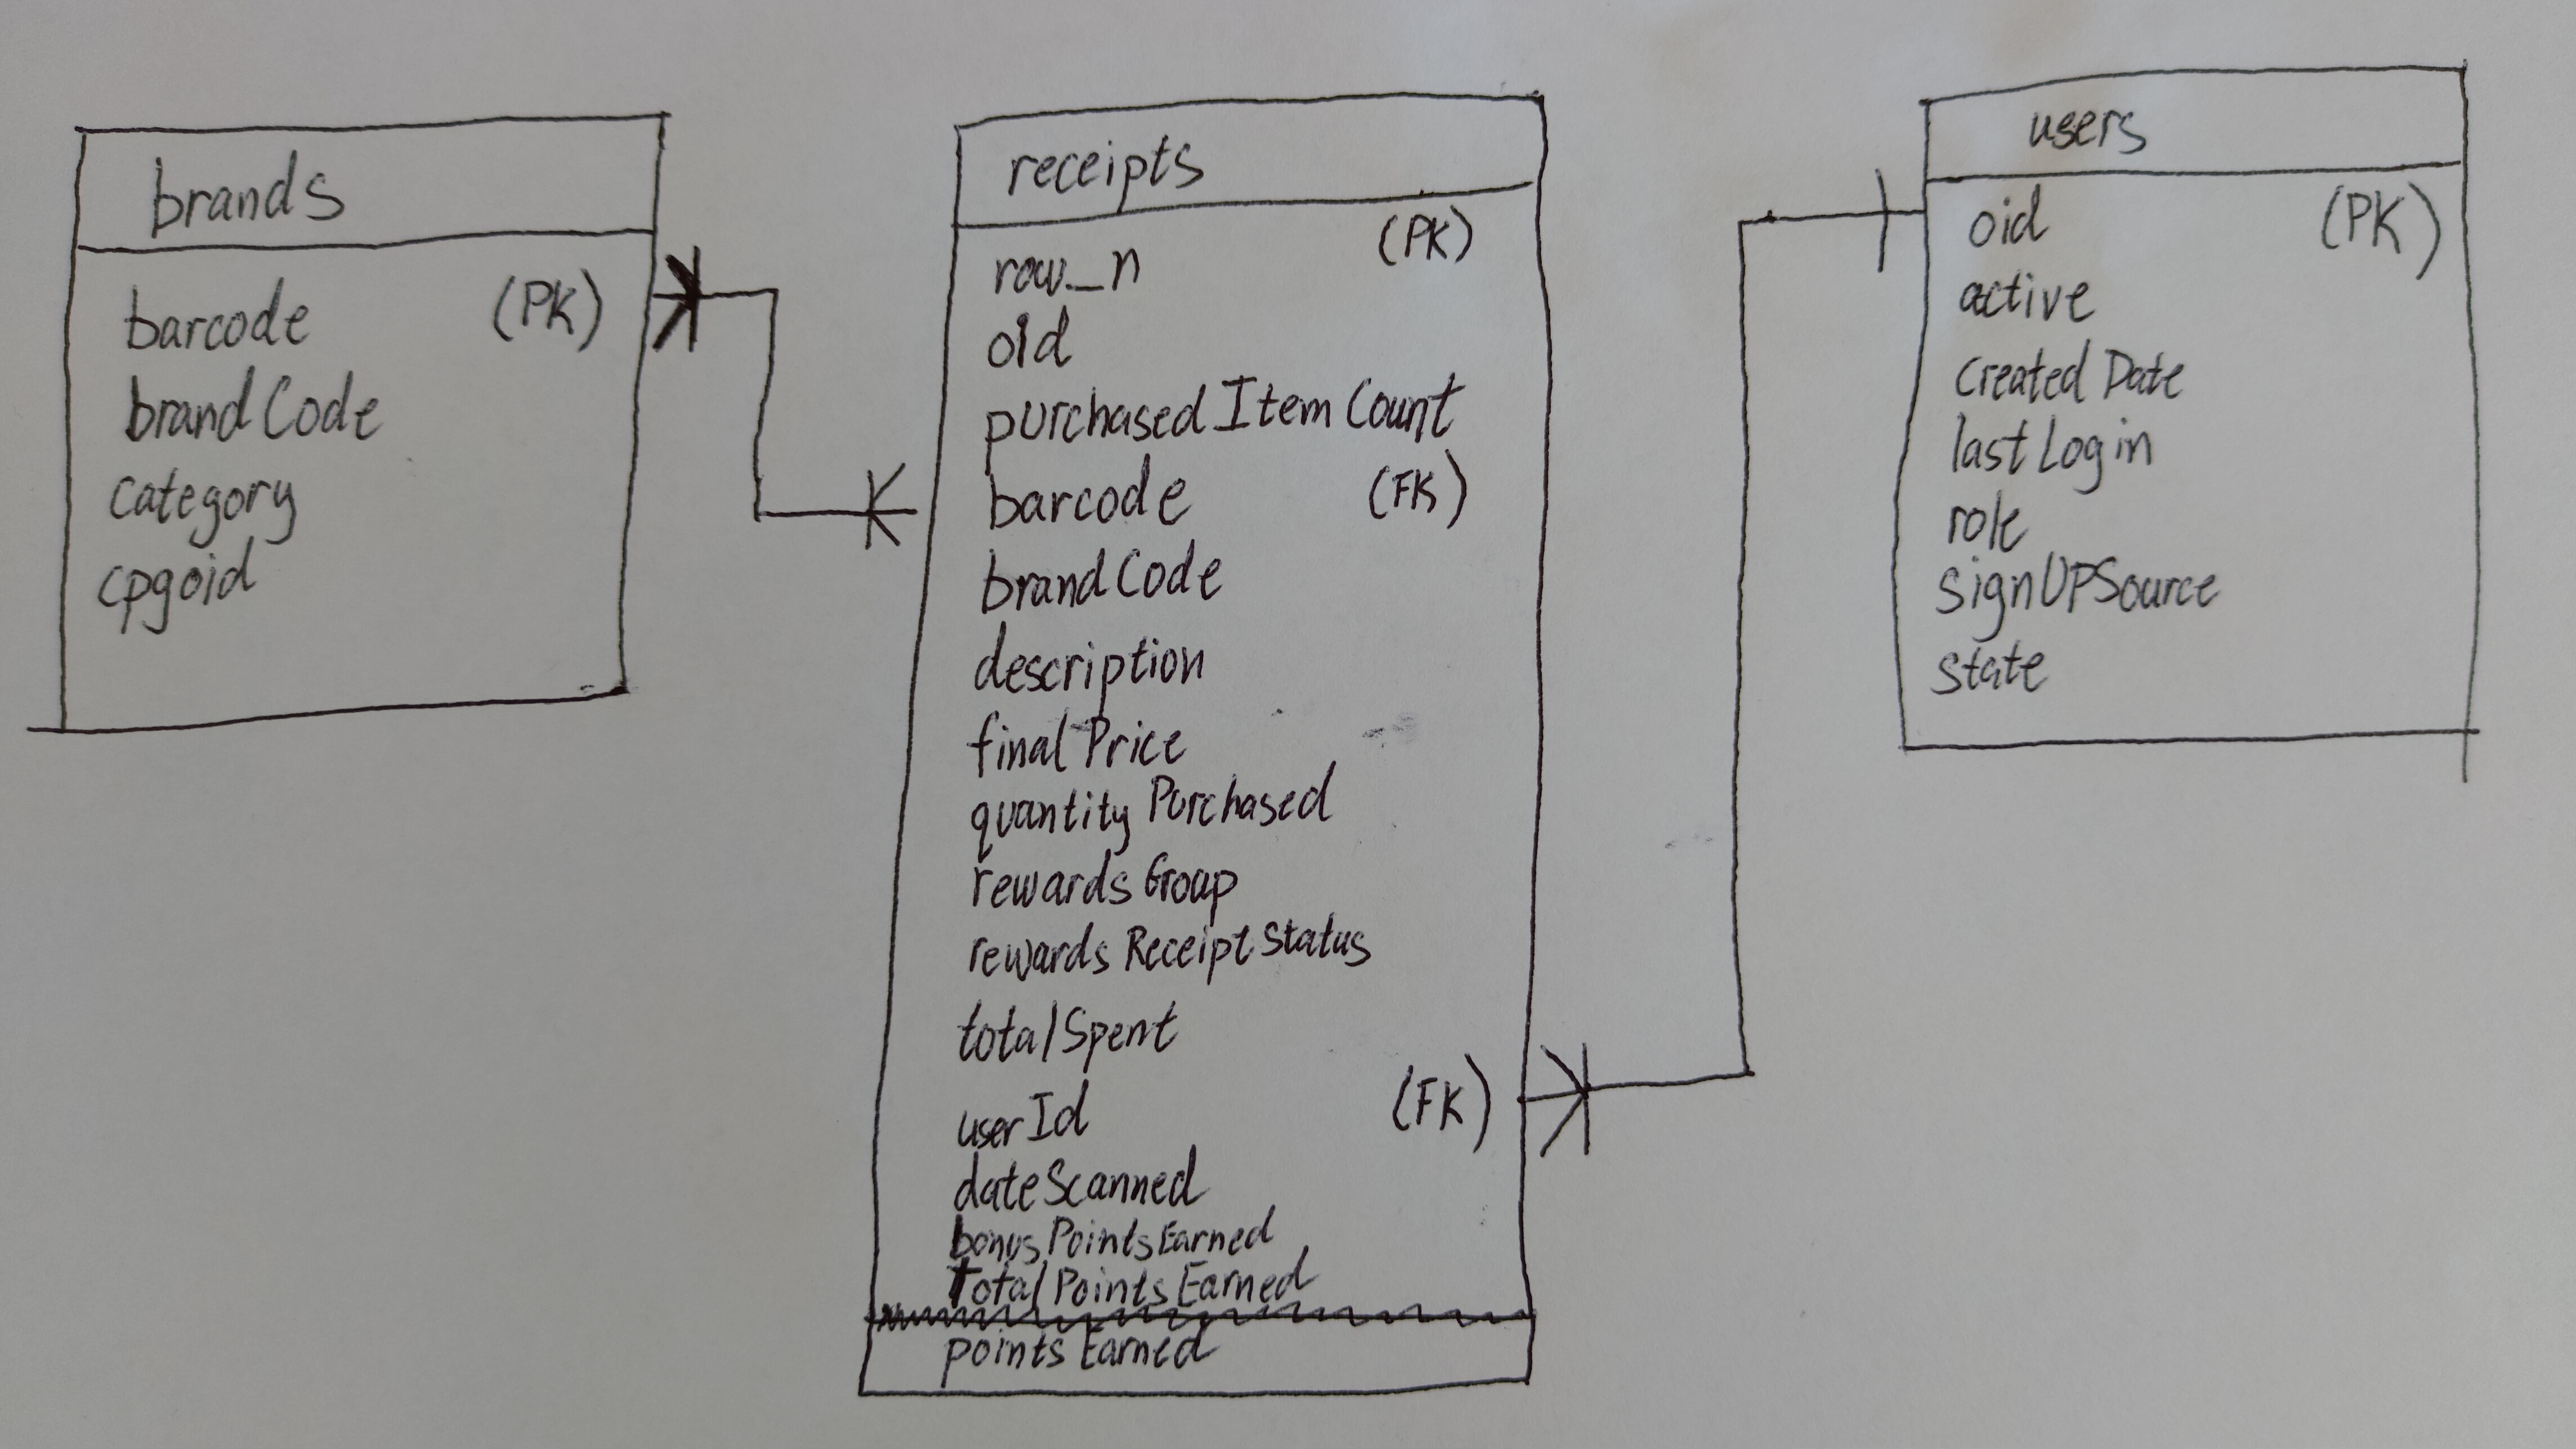 brands
barcode (PK)
brandCode
category
cpgoid
receipts
(PK)
row_n
oid
purchasedItemCount
barcode (FK)
brandCode
description
finalPrice
quantityPurchased
rewardsGroup
rewardsReceiptStatus
totalSpent
userId (FK)
dateScanned
bonusPointsEarned
TotalPointsEarned
pointsEarned
users
oid (PK)
active
createdDate
lastLogin
role
signUPSource
state